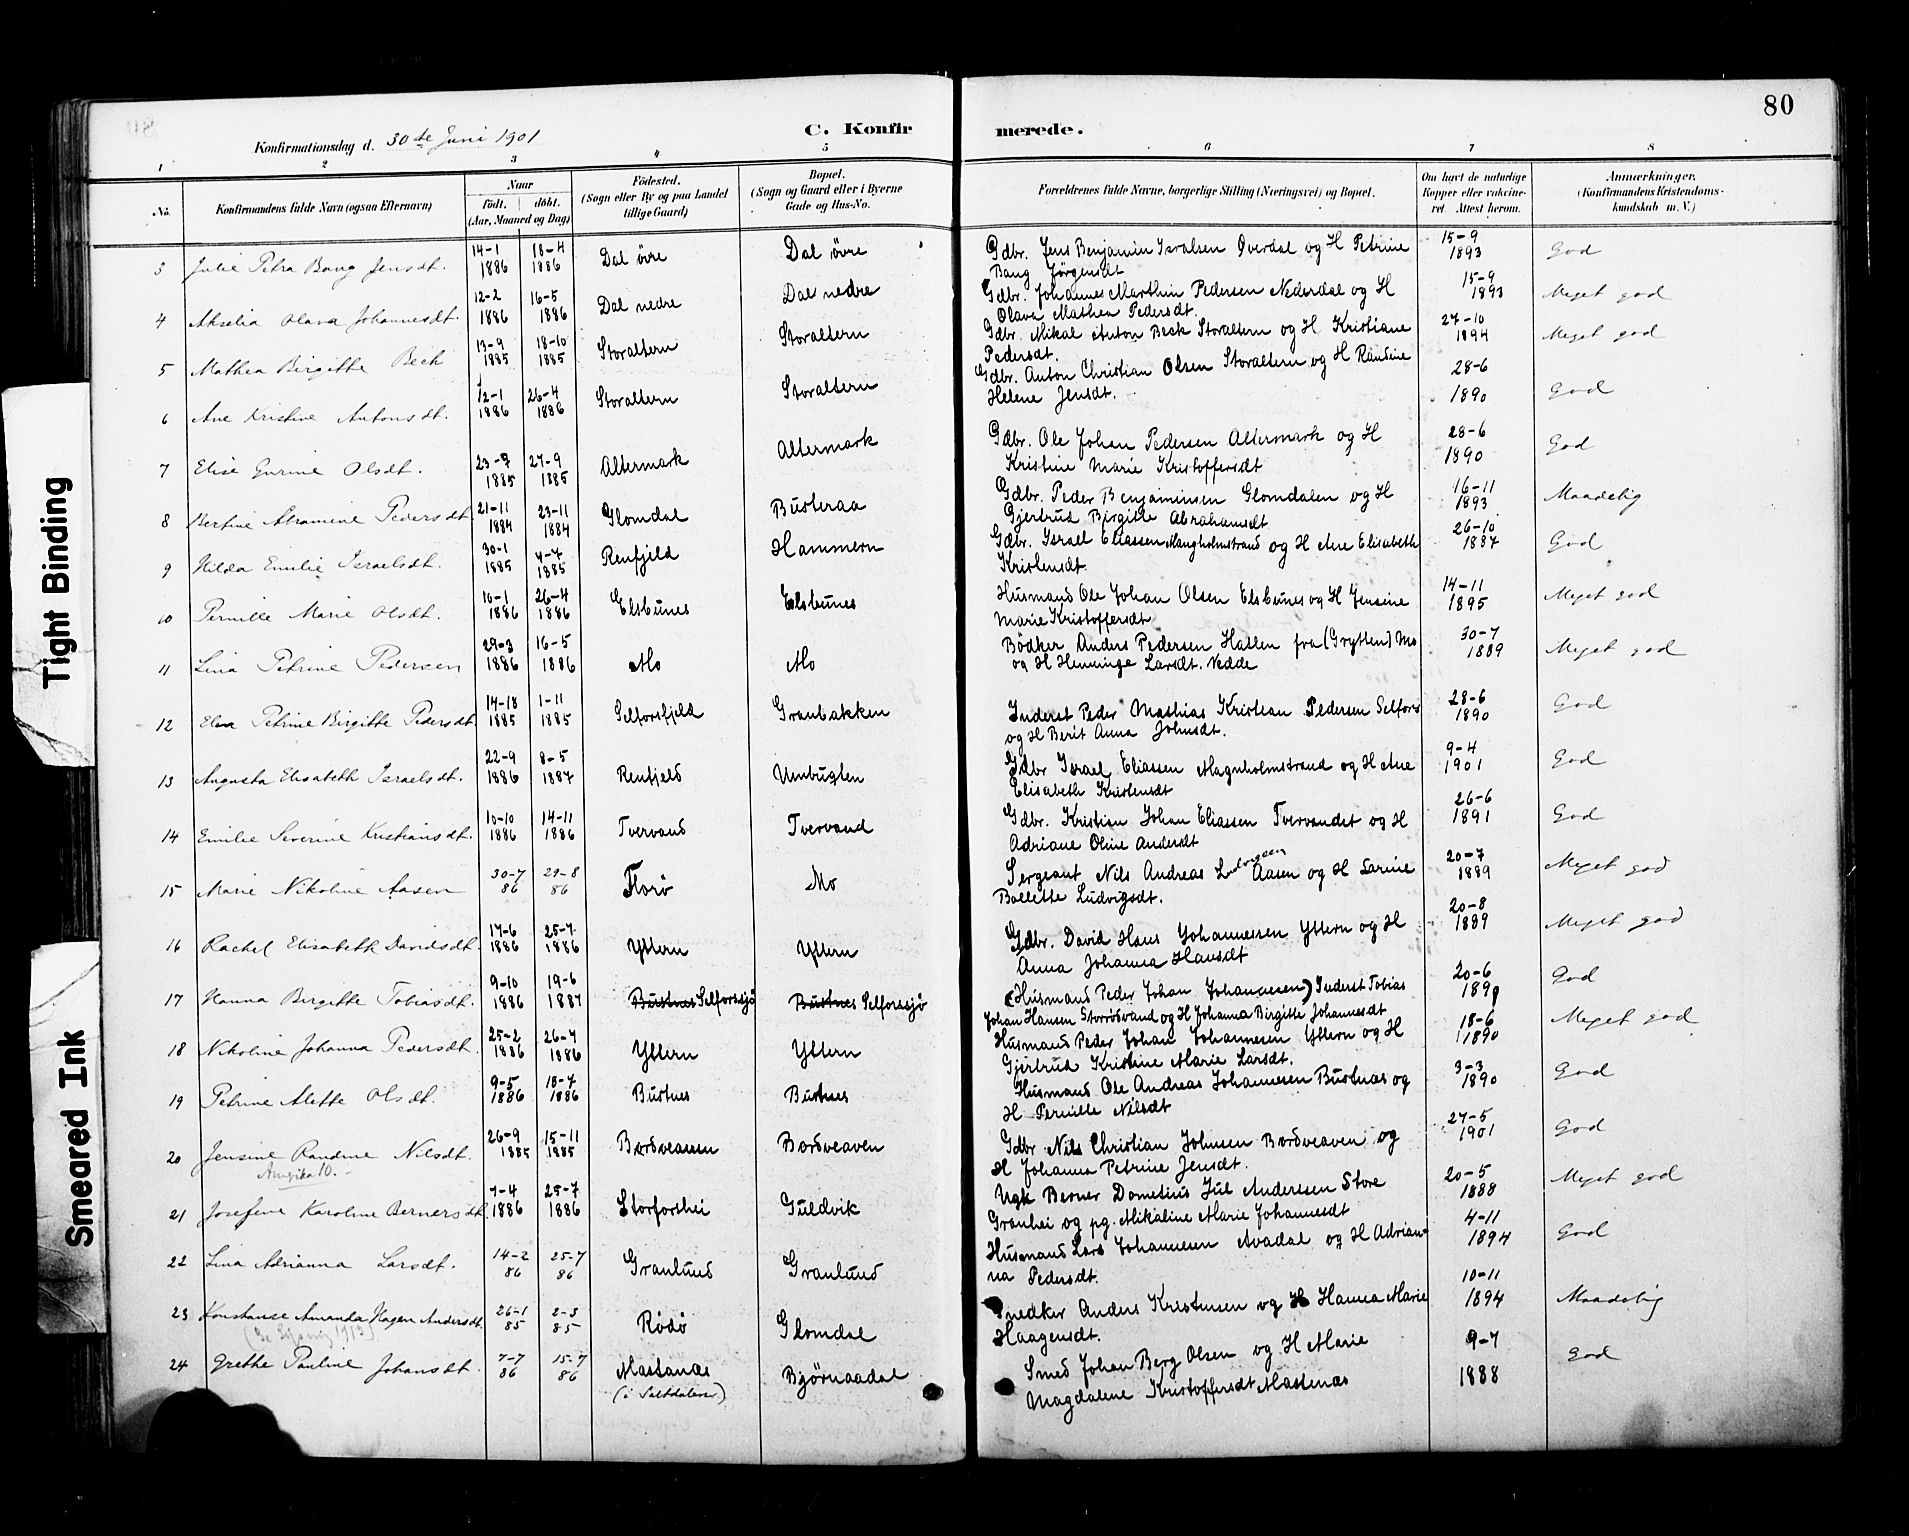 80
Konfirmationsdag d. 30te Juni 1901
C. Konfirmerede.
1 2 3 4 5 6 7 8
No. Konfirmandens fulde Navn (ogsaa Efternavn) Naar Födt. döbt. (Aar, Maaned og Dag) Födested. (Sogn eller By og paa Landet tillige Gaard) Bopæl. (Sogn og Gaard eller i Byerne Gade og Hus-No. Forældrenes fulde Navne, borgerlige Stilling (Næringsvei) og Bopæl. Om havt de naturlige Kopper eller vaccineret. Attest herom. Anmærkninger. (Konfirmandens Kristendomskundskab m. V.)
3 Julie Petra Bang Jensdt. 14-1 1886 18-4 1886 Dal övre Dal övre Gdbr. Jens Benjamin Isralsen Överdal og H Petrine 15-9 1893 God
Bang Jørgensdt
4 Akselia Olava Johannesdt. 12-2 1886 16-5 1886 Dal nedre Dal nedre Gdbr. Johannes Marthin Pedersen Nederdal og H 15-9 1893 Meget god
Olava Mathea Pedersdt.
5 Mathea Birgitte Bech 13-9 1885 18-10 1885 Storaltern Storaltern Gdbr. Mikal Anton Beck Storaltern og H Kristiane 27-10 1894 Meget god
Pedersdt.
6 Ane Kristine Antonsdt. 12-1 1886 26-4 1886 Storaltern Storaltern Gdbr. Anton Christian Olsen Storaltern og H Randine 28-6 1890 God
Helene Jensdt.
7 Elise Gurine Olsdt. 23-7 1885 27-9 1885 Altermark Altermark Gdbr. Ole Johan Pedersen Altermark og H 28-6 1890 God
Kristine Marie Kristoffersdt
8 Bertine Abramine Pedersdt. 21-11 1884 23-11 1884 Glomdal Busteraa Gdbr. Peder Benjaminsen Glomdalen og H 16-11 1893 Maadelig
Gjertrud Birgitte Abrahamsdt
9 Hilda Emilie Israelsdt. 30-1 1885 4-7 1885 Renfjeld Hammern Gdbr. Israel Eliassen Mangholmstrand og H Ane Elisabeth 26-10 1887 God
Kristensdt.
10 Pernille Marie Olsdt. 10-1 1886 26-4 1886 Elsbunes Elsbunes Husmand Ole Johan Olsen Elsbunes og H Jensine 14-11 1895 Meget god
Marie Kristoffersdt
11 Lina Petrine Pedersen 29-3 1886 16-5 1886 Mo Mo Bödker Anders Pedersen Hatlen fra (Grytten) Mo 30-7 1889 Meget god
og H Henninge Larsdt. Nedde
12 Elen Petrine Birgitte Pedersdt 14-10 1885 1-11 1885 Selforsfjeld Granbakken Inderst Peder Mathias Kristian Pedersen Selfors 28-6 1890 God
og H Berit Anna Johnsdt.
13 Augusta Elisabeth Israelsdt. 22-9 1886 8-5 1887 Renfjeld Umbugten Gdbr Israel Eliassen Magnholmstrand og H Ane 9-4 1901 God
Elisabeth Kristensdt
14 Emilie Severine Kristiansdt. 10-10 1886 14-11 1886 Tvervand Tvervand Gdbr. Kristian Johan Eliassen Tvervandet og H 26-6 1891 God
Adriane Oline Andersdt
15 Marie Nikoline Aasen 30-7 86 29-8 86 Florö Mo Sergeant Nils Andreas Ludvigsen Aasen og H Larine 20-7 1889 Meget god
Bollette Ludvigsdt.
16 Rachel Elisabeth Davidsdt. 17-6 1886 25-7 1886 Yttern Yttern Gdbr. David Hans Johannessen Yttern og H 20-8 1889 Meget god
Anna Johanna Hansdt
17 Hanna Birgitte Tobiasdt. 9-10 1886 19-6 1887 Bustnes Selforssjö Bustnes Selforssjö (Husmand Peder Johan Johannesen) Inderst Tobias 20-6 1890 God
Johan Hansen Storrövand og H Johanna Birgitte Johannesdt
18 Nikoline Johanna Pedersdt. 25-2 1886 26-4 1886 Yttern Yttern Husmand Peder Johan Johannesen Yttern og H 18-6 1890 Meget god
Gjertrud Kristine Marie Larsdt.
19 Petrine Alette Olsdt. 9-5 1886 18-7 1886 Bustnes Bustnes Husmand Ole Andreas Johannesen Bustnæs og 3-3 1890 God
H Pernille Nilsdt
20 Jensine Randine Nilsdt. 26-9 1885 15-11 1885 Bordveassen Bordveaven Gdbr Nils Christian Johnsen Bordveaven og 27-5 1901 God
Amerika 10. H Johanna Petrine Jensdt.
21 Josefine Karoline Bernersdt. 7-4 1886 25-7 1886 Storforshei Guldvik Ugk Berner Dometius Jul Anderssen Store 20-5 1888 Meget god
Granhei og pg. Mikaline Marie Johannesdt
22 Lina Adrianna Larsdt. 14-2 86 25-7 86 Granlund Granlund Husmand Lars Johannesen Avadal og H Adrian- 4-11 1894 God
na Pedersdt.
23 Konstanse Amanda Hagen Andersdt. 26-1 85 2-3 85 Rödö Glomdal Snedker Anders Kristensen og H Hanna Marie 10-11 1894 Maadelig
Haagensdt.
24 Grethe Pauline Johansdt. 7-7 86 15-7 86 Mastanæs (i Saltdalen) Bjørnaadal Smed Johan Berg Olsen og H Marie 9-7 1888 God
Magdalene Kristoffersdt Mastenæs
Tight Binding
Smeared Ink